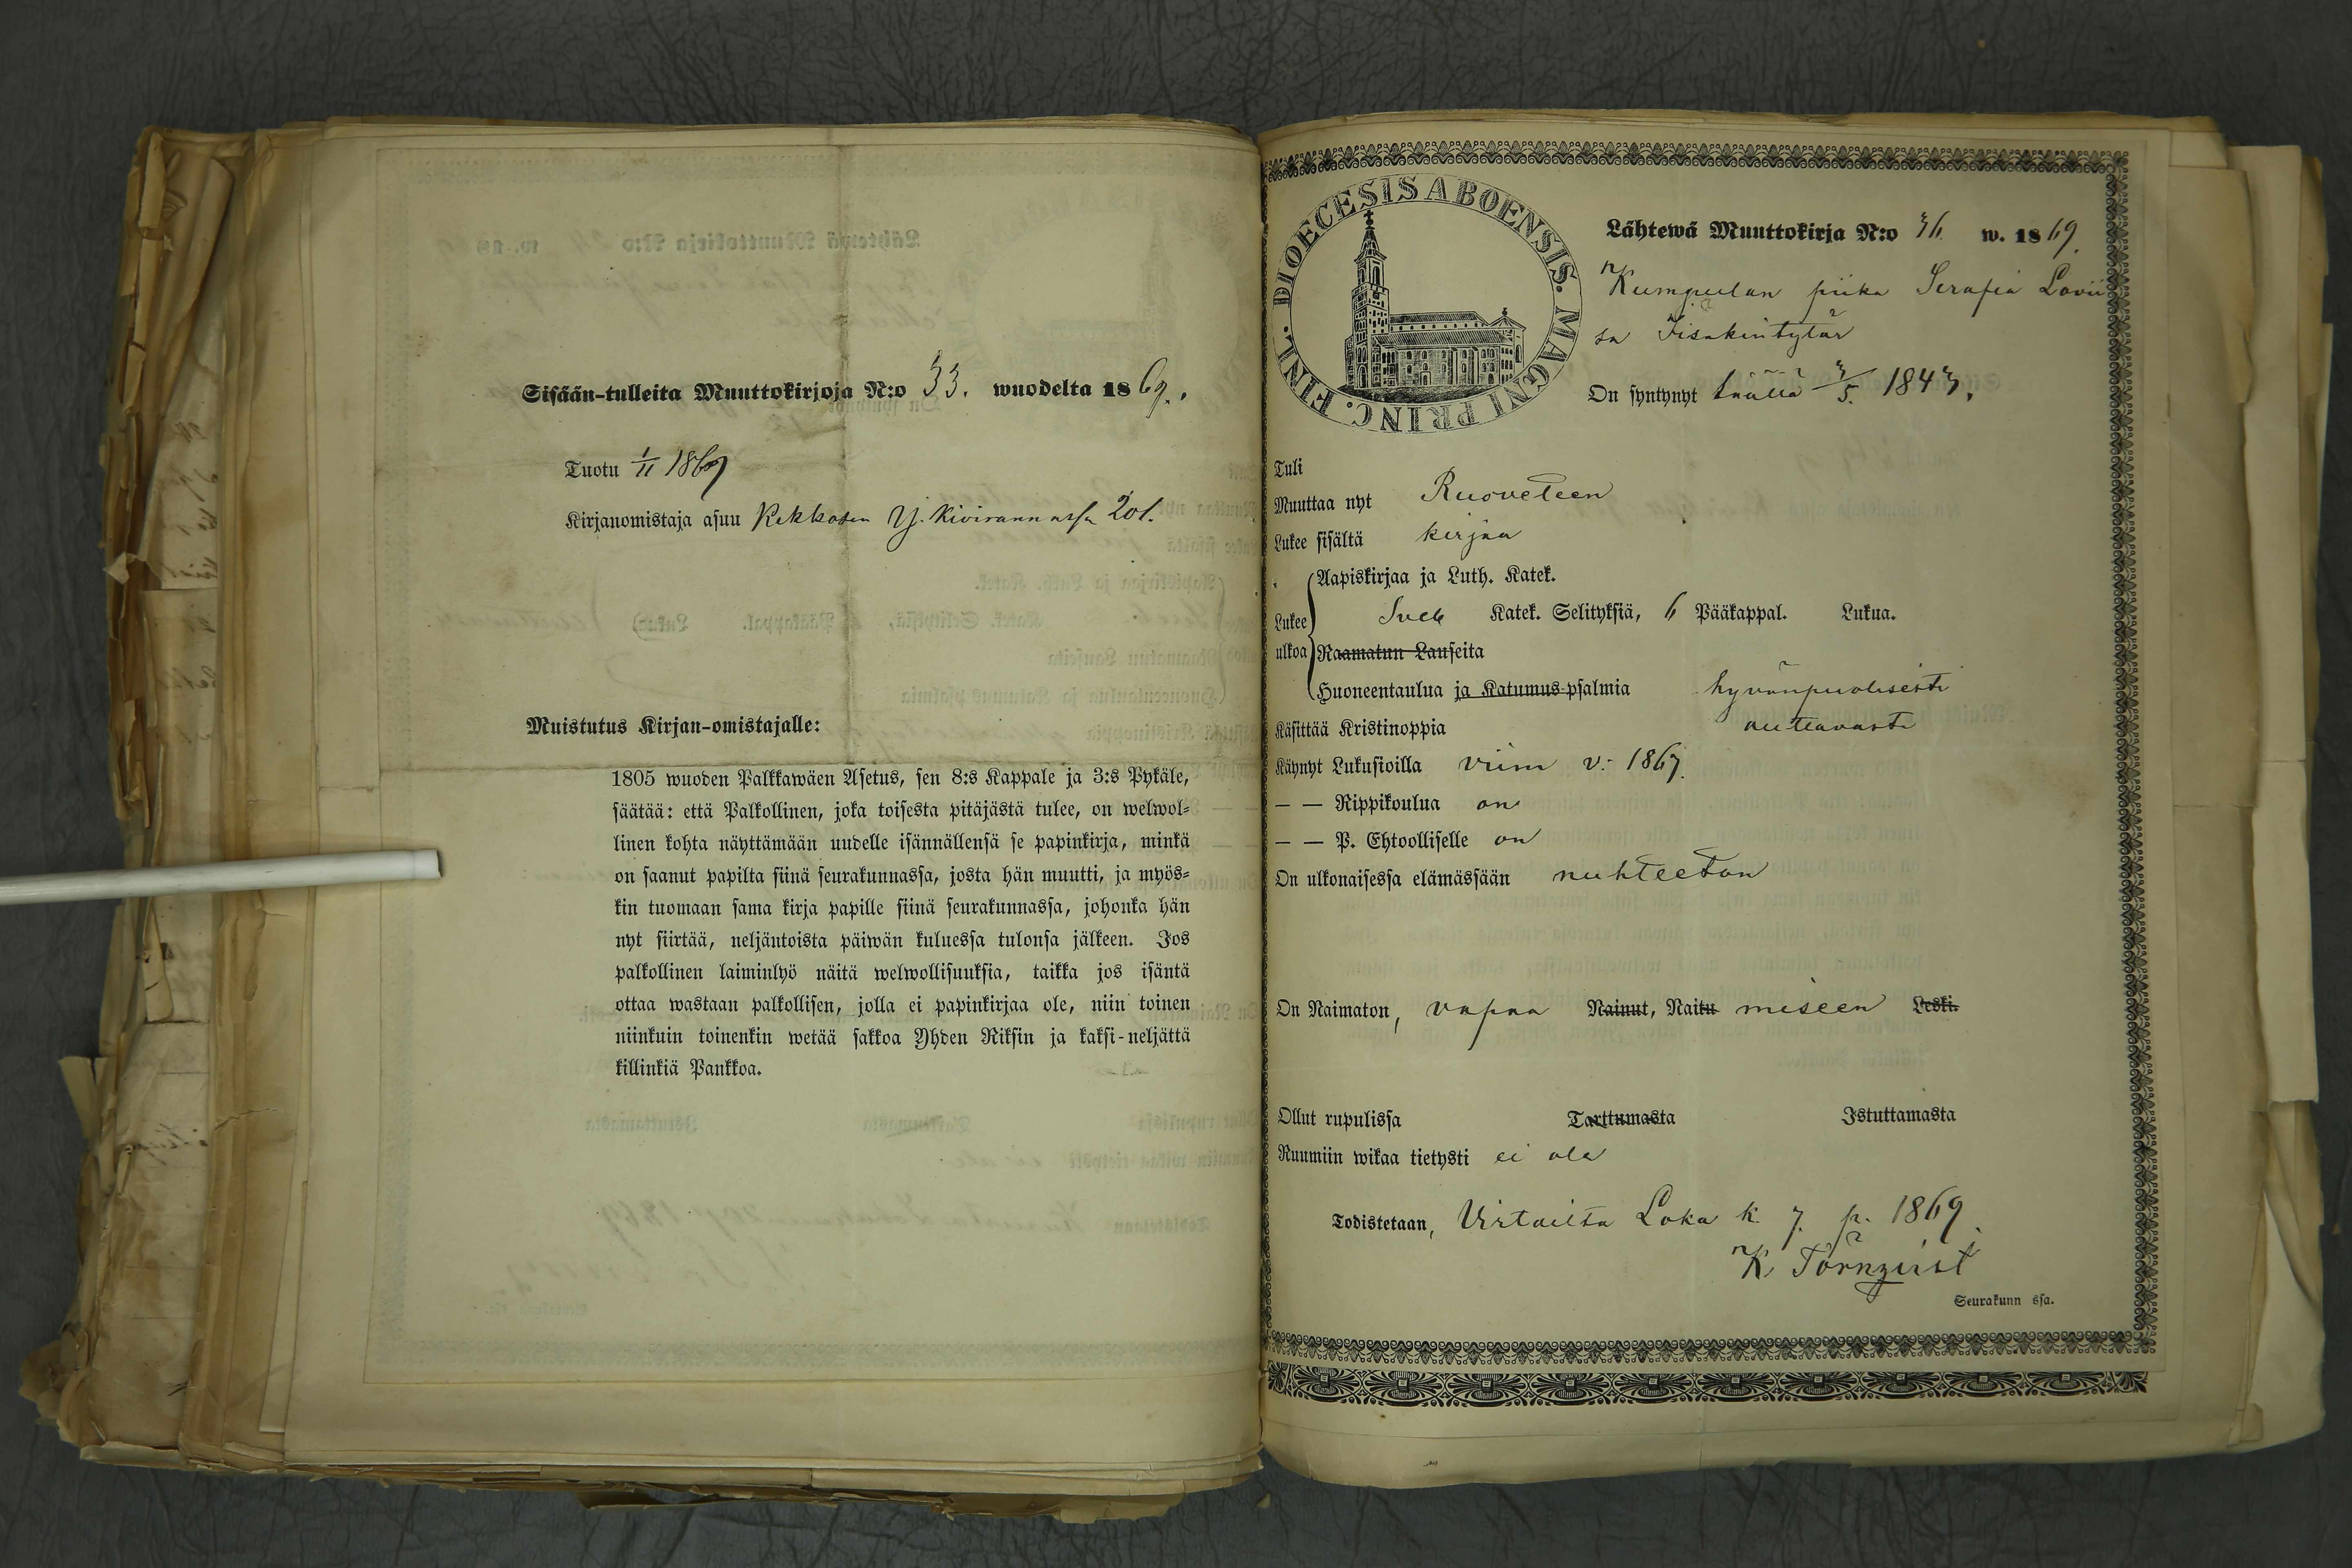 Sisään-tulleita Muuttokirjoja N:o 33. wuodelta 1869.
Tuotu 1/11 1869
Kirjanomistaja asuu Kekkosen Yl. Kivirannassa 201.
Muistutus Kirjan-omistajalle:
1805 wuoden Palkkawäen Asetus, sen 8:s Kappale ja 3:s Pykäle,
säätää: että Palkollinen, joka toisesta pitäjästä tulee, on welwol-
linen kohta näyttämään uudelle isännällensä se papinkirja, minkä
on saanut papilta siinä seurakunnassa, josta hän muutti, ja myös-
kin tuomaan sama kirja papille siinä seurakunnassa, johonka hän
nyt siirtää, neljäntoista päiwän kuluessa tulonsa jälkeen. Jos
palkollinen laiminlyö näitä welwollisuuksia, taikka jos isäntä
ottaa wastaan palkollisen, jolla ei papinkirjaa ole, niin toinen
niinkuin toinenkin wetää sakkoa Yhden Riksin ja kaksi-neljättä
killinkiä Pankkoa.
DIOECESIS ABOENSIS. MAGNI PRINC. FINL.
Lähtewä Muuttokirja N:o 36 w. 1869.
Kumpulan piika Serafia Lovii
sa Iisakintytär
On syntynyt täällä 3/5. 1843.
Tuli
Muuttaa nyt Ruoveteen
Lukee sisältä kirjaa
Aapiskirjaa ja Luth. Katek.
Lukee ulkoa Sveb Katek. Selityksiä, 6 Pääkappal. Lukua.
Raamatun Lauseita
Huoneentaulua ja Katumus-psalmia hyvänpuolisesti
Käsittää Kristinoppia auttavasti
Käynyt Lukusioilla viim v:- 1867.
— — Rippikoulua on
— — P. Ehtoolliselle on
On ulkonaisessa elämässään nuhteeton
On Naimaton, vapaa Nainut, Naitu miseen Leski.
Ollut rupulissa Tarttumasta Istuttamasta
Ruumiin wikaa tietysti ei ole
Todistetaan, Virtailta Loka k. 7. p. 1869.
K Törnqvist
Seurakunn ssa.